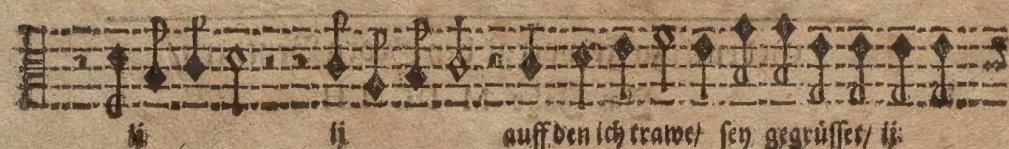 ij ij auff den ich trawe/ sey gegrüsset/ ij.